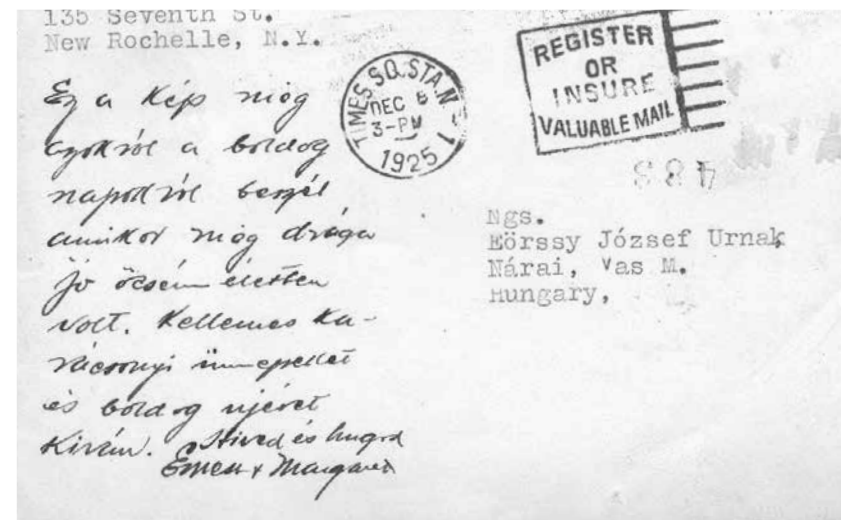 135 Seventh St.
New Rochelle, N.Y.
Ez a kép még
azokról a boldog
napokról beszél
amikor még drága
jó öcsém életben
volt. Kellemes ka-
rácsonyi ünnepeket
és boldog újévet
kíván. Híved és hugod
& Margaret
TIMES SQ. STA. N.Y.
DEC 6
3-PM
1925
REGISTER
OR
INSURE
VALUABLE MAIL
Ngs.
Eörssy József Urnak
Nárai, Vas M.
Hungary,